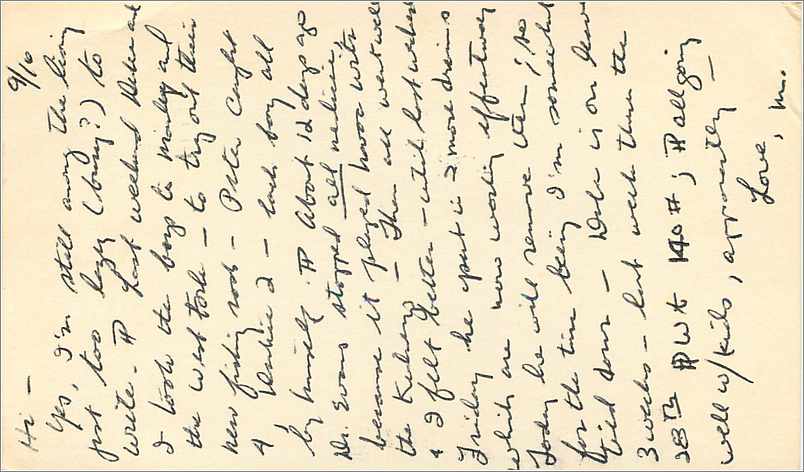 Hi — 9/10
Yes, I'm still among the living
just too lazy (busy?) to
write. ¶ Last weekend and
I took the boys to and
the West Fork — to try out their
new fishing rods — Peter caught
4 2 — each boy all
by himself. ¶ About 12 days ago
Dr. Evans stopped all medicine,
because it played havoc with
the kidneys — Then all went well
& I felt better — until last
Friday he put in 2 more drains
which are now working effectively
Today he will remove them; so
for the time being I'm somewhat
tied down — is on leave
3 weeks — last week thru the
28th ¶ Wt 140 #; ¶ all going
well w/kids, apparently —
Love, M.